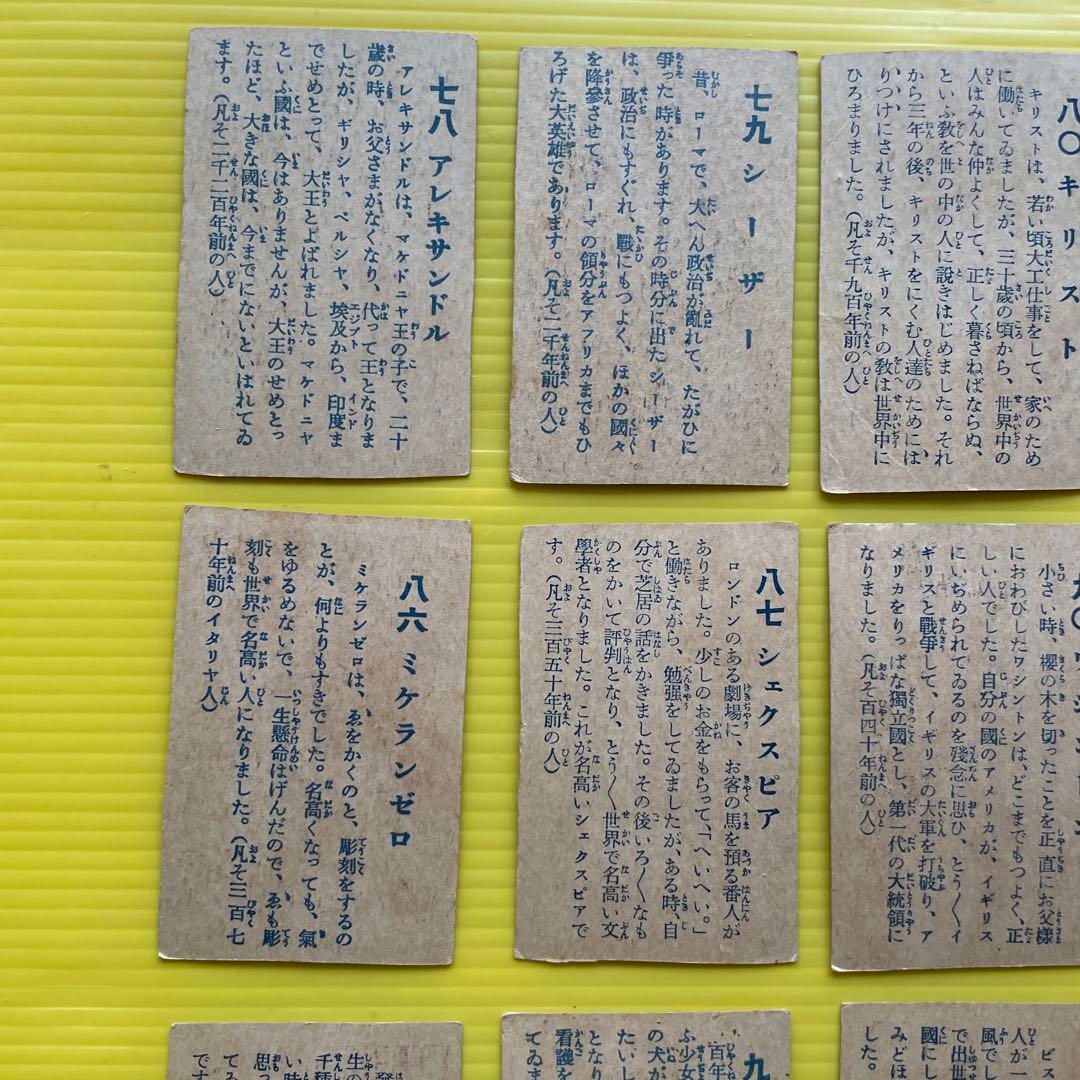 七八 アレキサンドル
アレキサンドルは、マケドニヤ王の子で、二十
歲の時、お父さまがなくなり、代って王となりま
したが、ギリシャ、ペルシャ、埃及から、印度ま
でせめとって、大王とよばれました。マケドニヤ
といふ國は、今はありませんが、大王のせめとっ
たほど、大きな國は、今までにないといはれてゐ
ます。（凡そ二千二百年前の人）
七九 シーザー
昔、ローマで、大へん政治が亂れて、たがひに
爭った時があります。その時分に出たシーザー
は、政治にもすぐれ、戰にもつよく、ほかの國々
を降參させて、ローマの領分をアフリカまでもひ
ろげた大英雄であります。（凡そ二千年前の人）
八〇 キリスト
キリストは、若い頃大工仕事をして、家のため
に働いてゐましたが、三十歲の頃から、世界中の
人はみんな仲よくして、正しく暮さねばならぬ、
といふ敎を世の中の人に說きはじめました。それ
から三年の後、キリストをにくむ人達のためには
りつけにされましたが、キリストの敎は世界中に
ひろまりました。（凡そ千九百年前の人）
八六 ミケランゼロ
ミケランゼロは、ゑをかくのと、彫刻をするの
とが、何よりもすきでした。名高くなっても、氣
をゆるめないで、一生懸命はげんだので、ゑも彫
刻も世界で名高い人になりました。（凡そ三百七
十年前のイタリヤ人）
八七 シェクスピア
ロンドンのある劇場に、お客の馬を預る番人が
ありました。少しのお金をもらって、「へいへい。」
と働きながら、勉强をしてゐましたが、ある時、自
分で芝居の話をかきました。その後いろ〱なも
のをかいて評判となり、とう〱世界で名高い文
學者となりました。これが名高いシェクスピアで
す。（凡そ三百五十年前の人）
九〇 ワシントン
小さい時、櫻の木を切ったことを正直にお父樣
におわびしたワシントンは、どこまでもつよく、正
しい人でした。自分の國のアメリカが、イギリス
にいぢめられてゐるのを殘念に思ひ、とう〱イ
ギリスと戰爭して、イギリスの大軍を打破り、ア
メリカをりっぱな獨立國とし、第一代の大統領に
なりました。（凡そ百四十年前の人）
生の
千種
い時
思っ
てみ
です
九
百年
ふ少女
の犬が
たいし
となり
看護を
てゐま
ビス
人が一
風でし
で出世
國にし
みどほ
した。